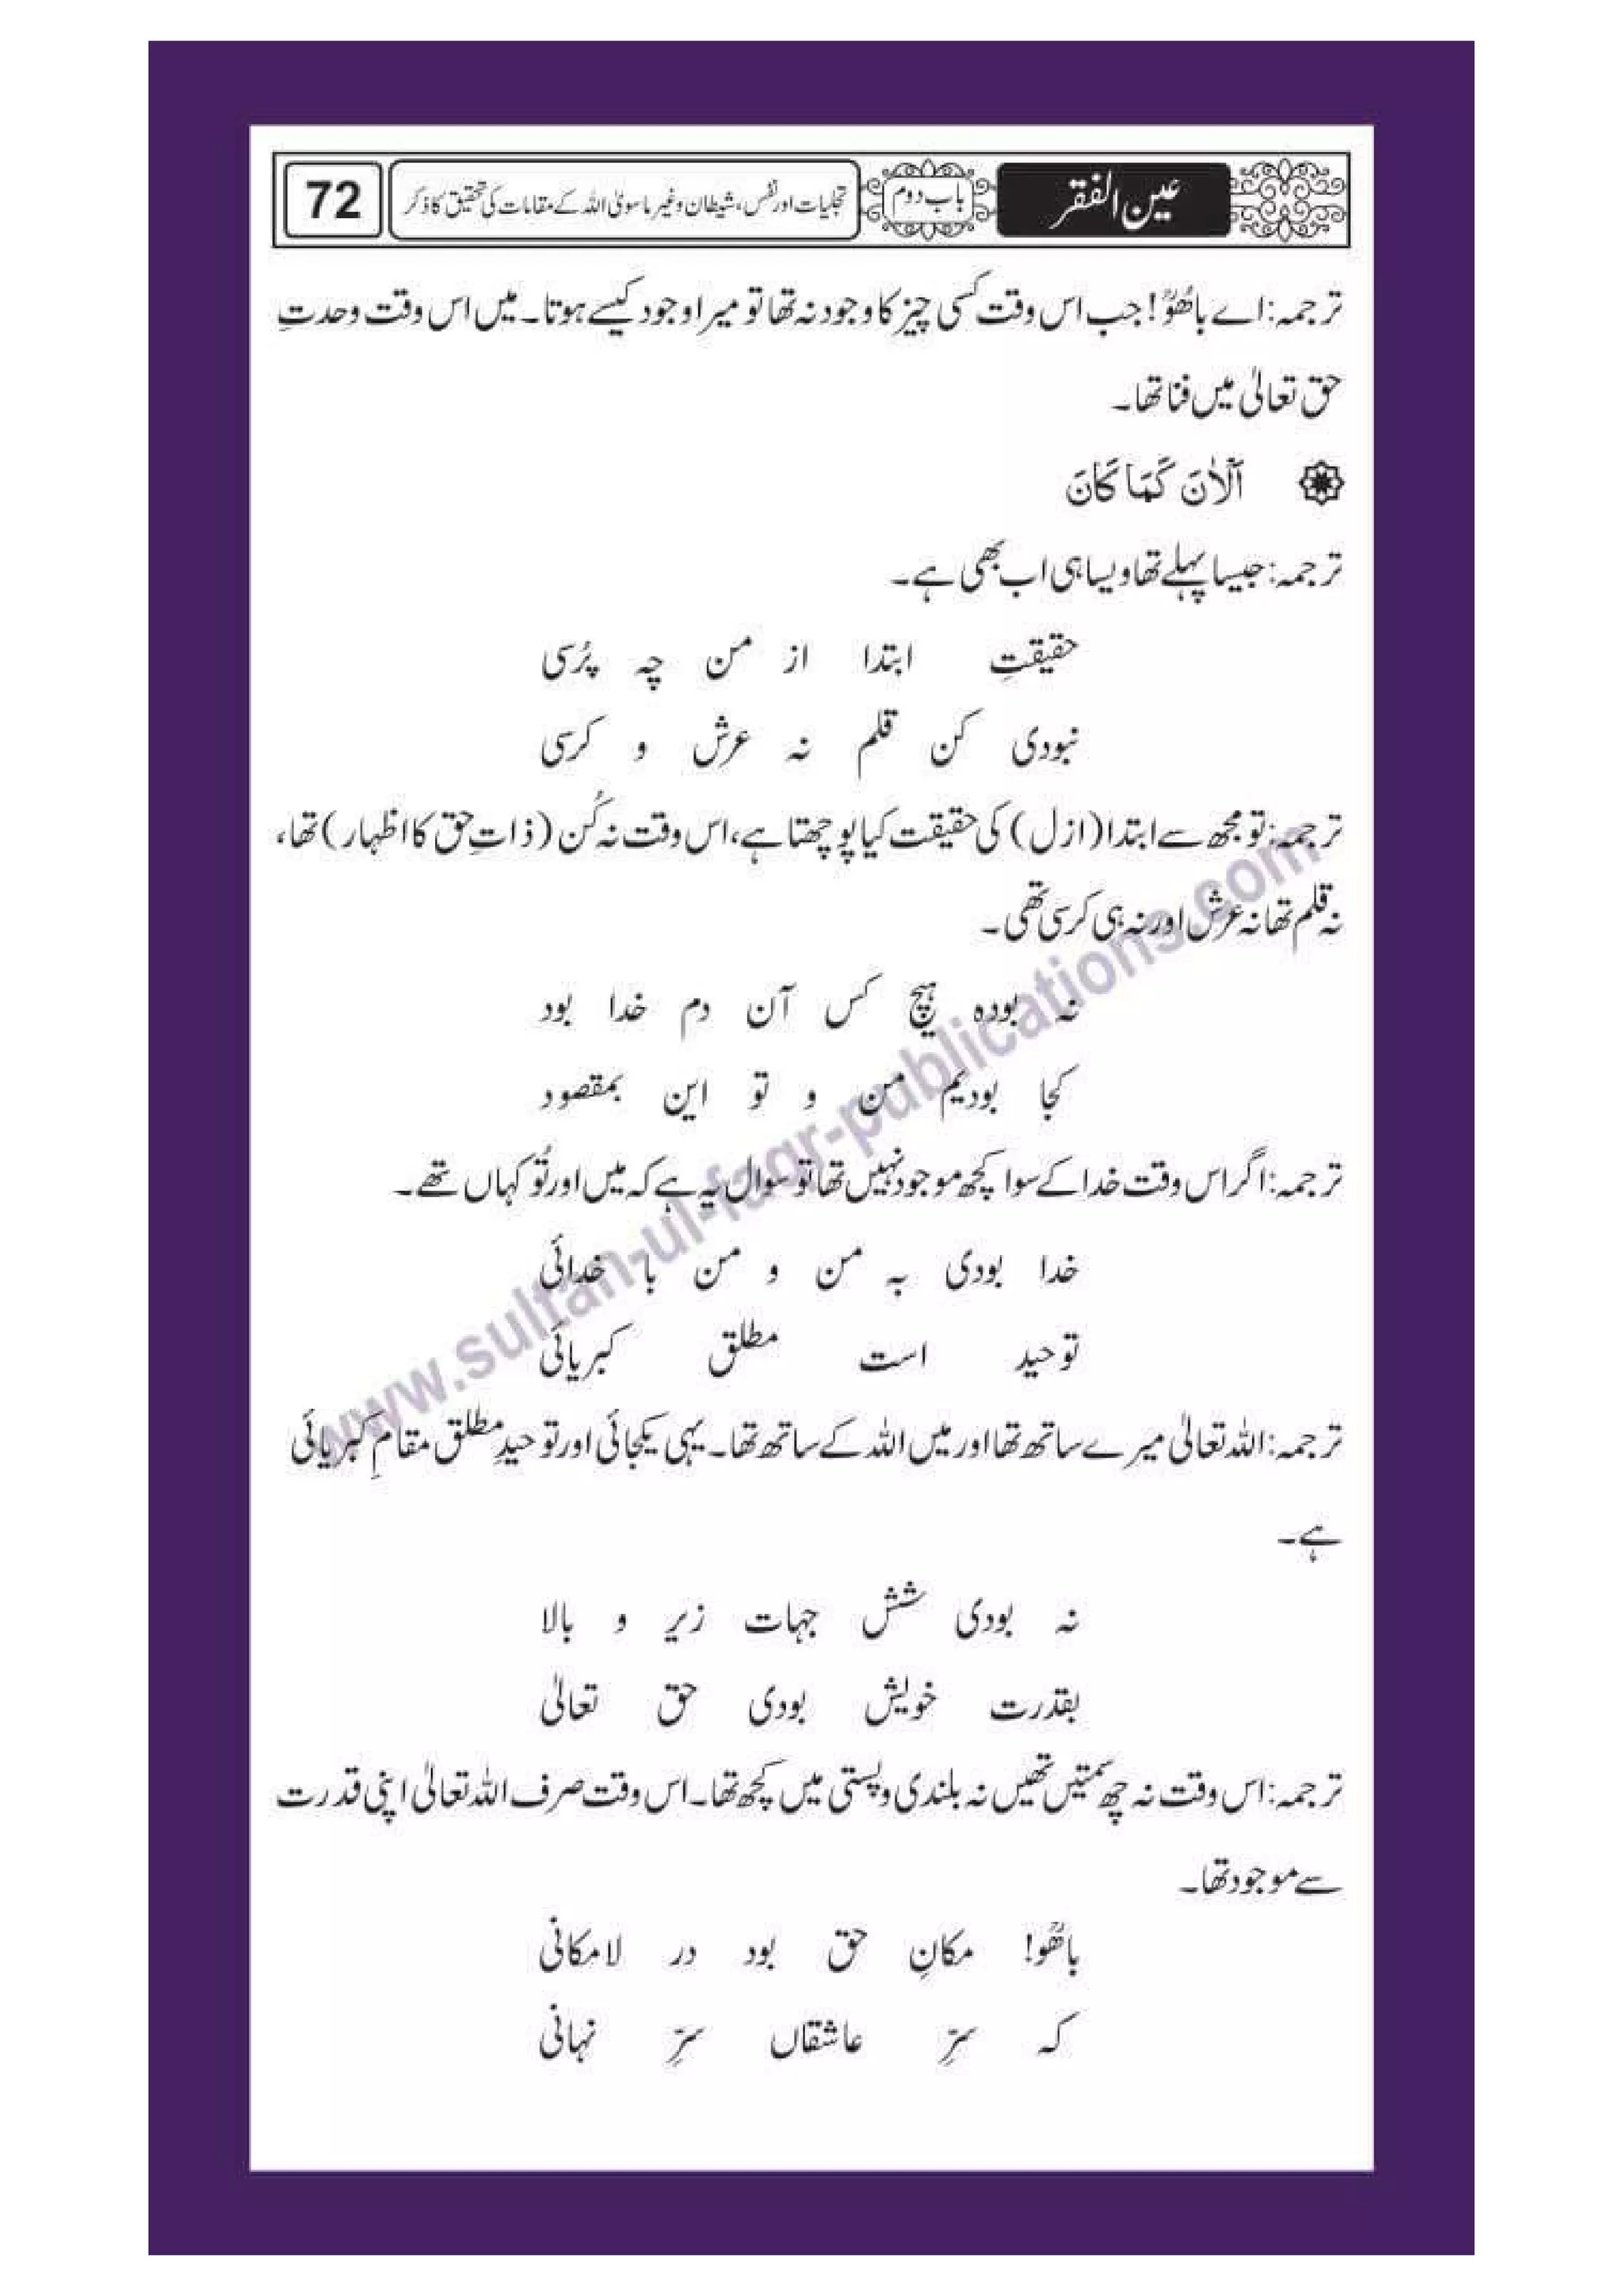 عین الفقر
باب دوم
تجلیات اور نفس، شیطان و غیر ماسویٰ اللہ کے مقامات کی تحقیق کا ذکر
72
ترجمہ: اے باھُوؒ! جب اس وقت کسی چیز کا وجود نہ تھا تو میرا وجود کیسے ہوتا۔ میں اس وقت وحدتِ
حق تعالیٰ میں فنا تھا۔
اَلْاٰنَ کَمَا کَانَ
ترجمہ: جیسا پہلے تھا ویسا ہی اب بھی ہے۔
حقیقتِ ابتدا از من چہ پُرسی
نبودی کن قلم نہ عرش و کرسی
ترجمہ: تو مجھ سے ابتدا (ازل) کی حقیقت کیا پوچھتا ہے، اس وقت نہ کُن (ذاتِ حق کا اظہار) تھا،
نہ قلم تھا نہ عرش اور نہ ہی کرسی تھی۔
نہ بودہ ہیچ کس آن دم خدا بود
کجا بودیم من و تو این بمقصود
ترجمہ: اگر اس وقت خدا کے سوا کچھ موجود نہیں تھا تو سوال یہ ہے کہ میں اور تُو کہاں تھے۔
خدا بودی بہ من و من با خدائی
توحید است مطلق کبریائی
ترجمہ: اللہ تعالیٰ میرے ساتھ تھا اور میں اللہ کے ساتھ تھا۔ یہی یکجائی اور توحیدِ مطلق مقامِ کبریائی
ہے۔
نہ بودی شش جہات زیر و بالا
بقدرت خویش بودی حق تعالیٰ
ترجمہ: اس وقت نہ چھ سمتیں تھیں نہ بلندی و پستی میں کچھ تھا۔ اس وقت صرف اللہ تعالیٰ اپنی قدرت
سے موجود تھا۔
باھُوؒ! مکانِ حق بود در لامکانی
کہ سِرِّ عاشقاں سِرِّ نہانی
www.sultan-ul-faqr-publications.com